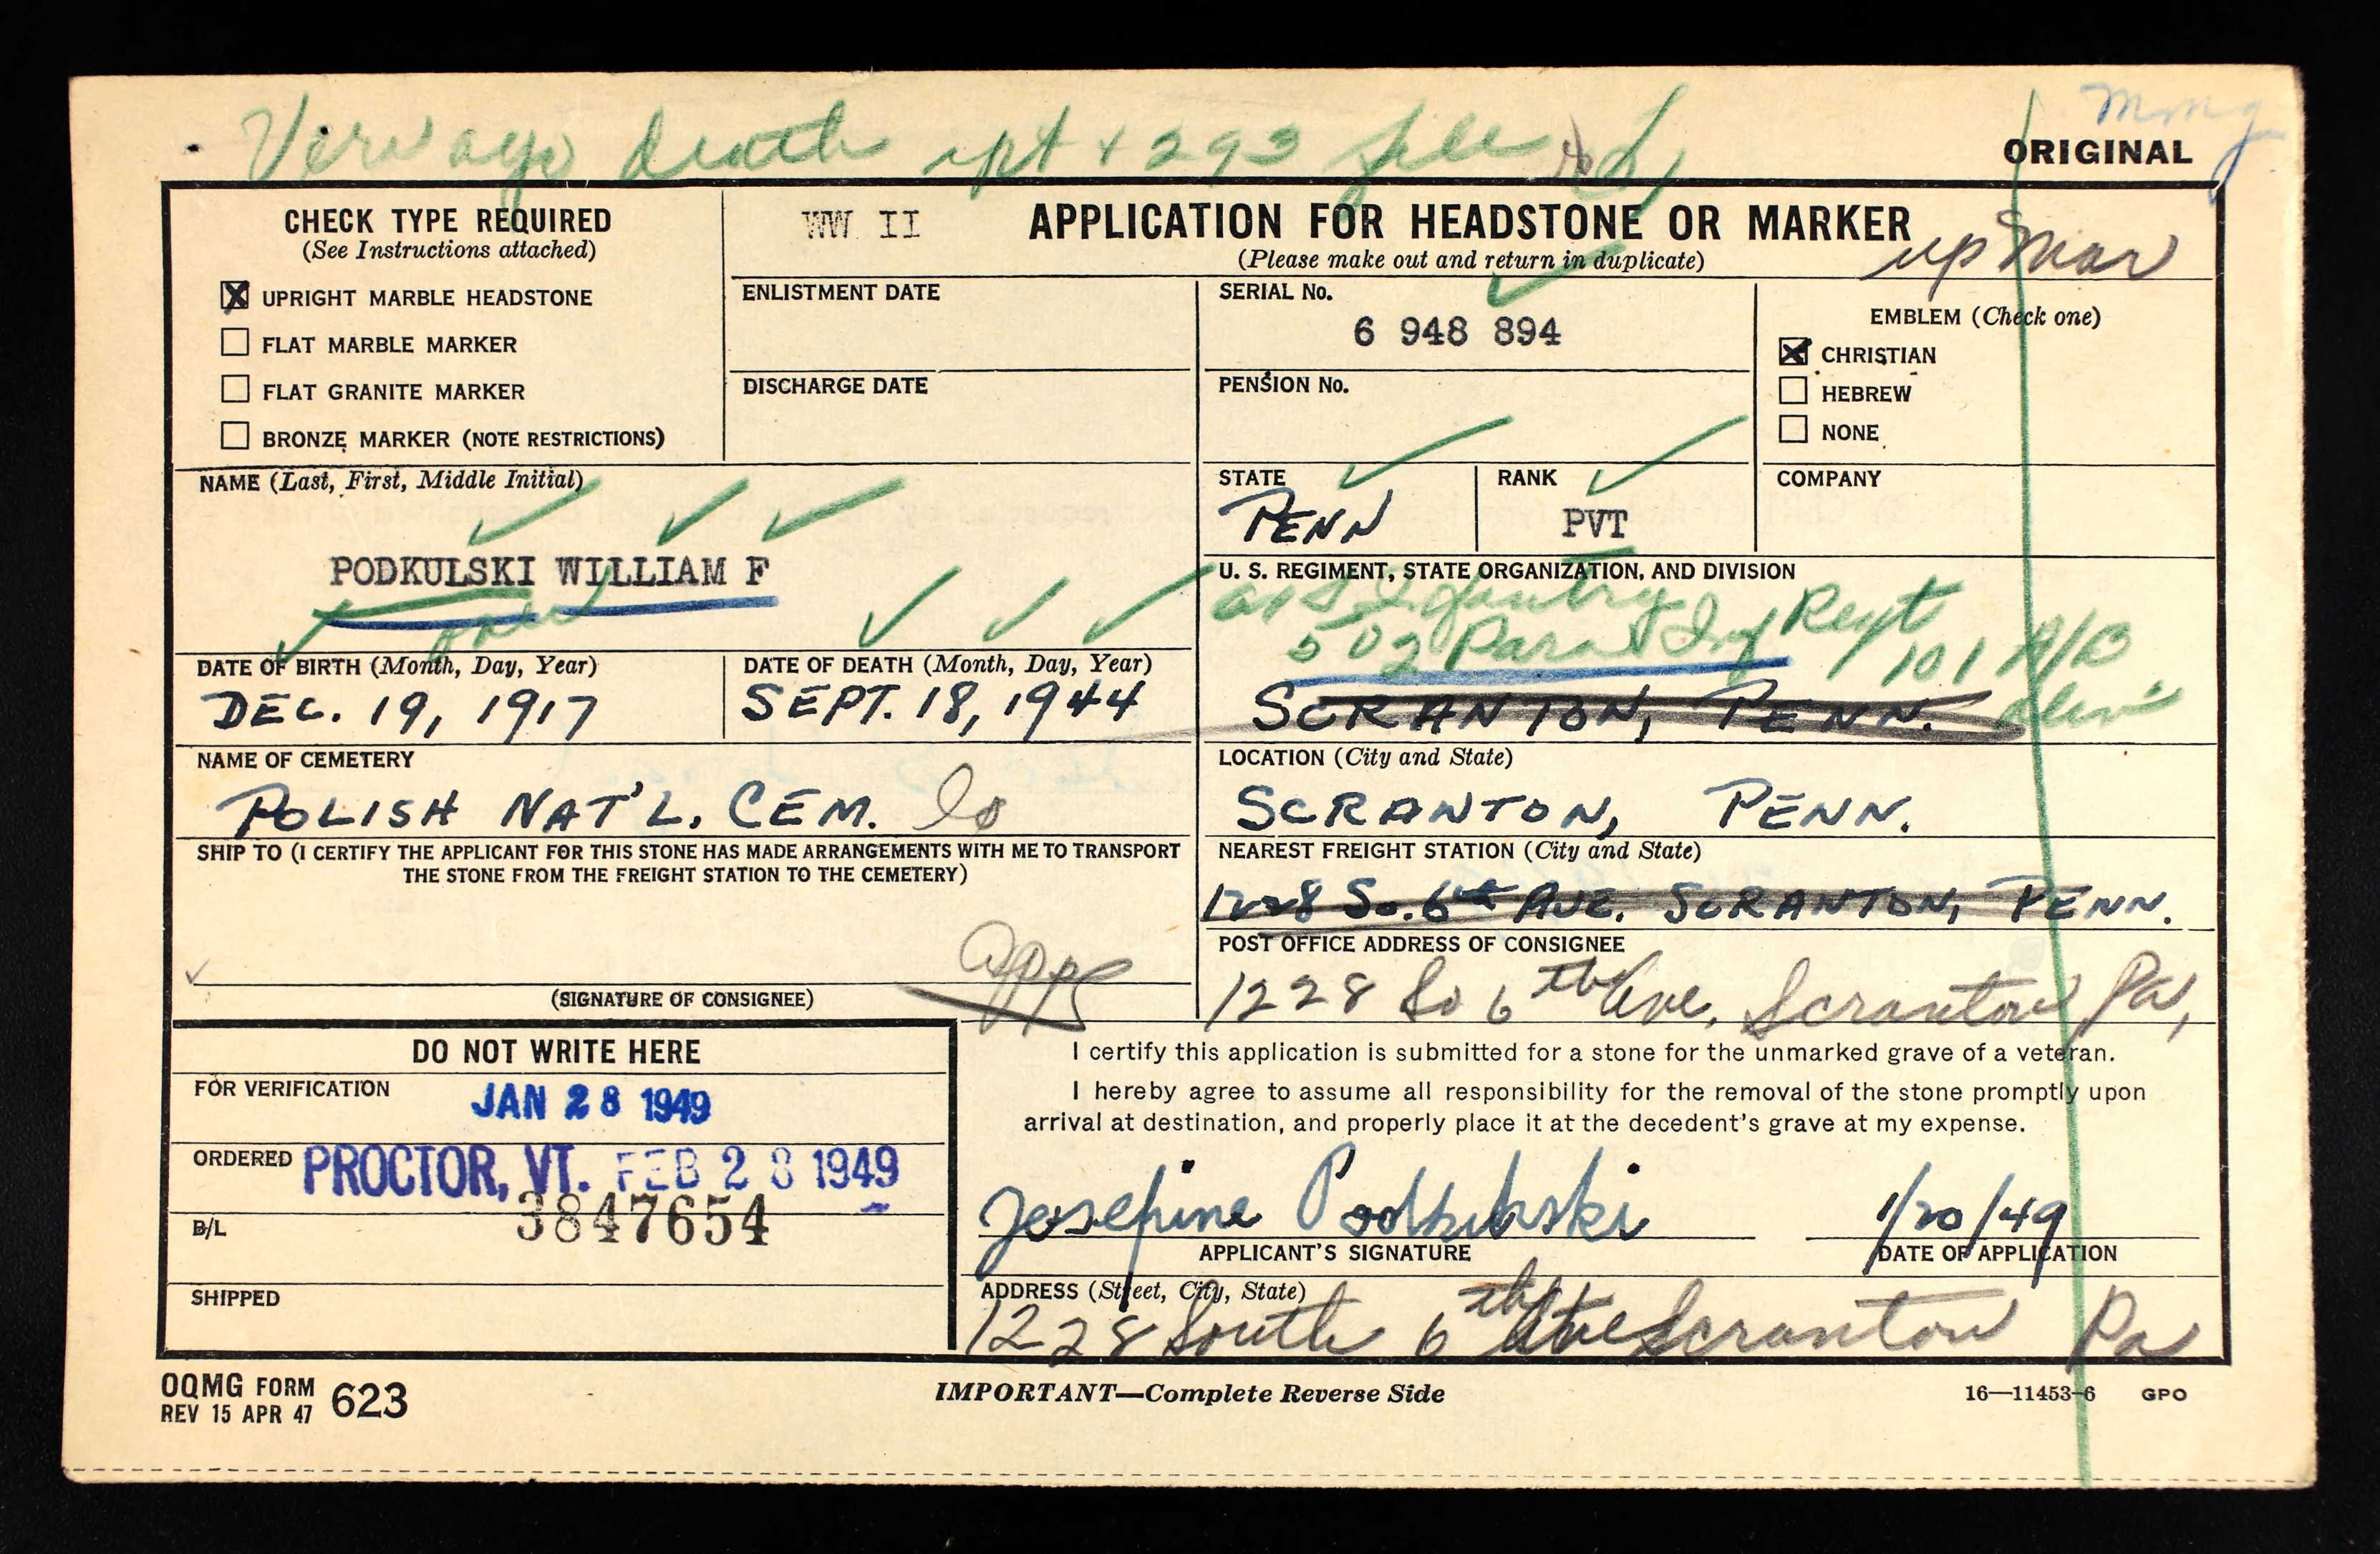 death rpt & 293 file
ORIGINAL
CHECK TYPE REQUIRED
(See Instructions attached)
WW II
APPLICATION FOR HEADSTONE OR MARKER
(Please make out and return in duplicate)
up Mar
☒ UPRIGHT MARBLE HEADSTONE
☐ FLAT MARBLE MARKER
☐ FLAT GRANITE MARKER
☐ BRONZE MARKER (NOTE RESTRICTIONS)
ENLISTMENT DATE
DISCHARGE DATE
SERIAL No.
6 948 894
PENSION No.
EMBLEM (Check one)
☒ CHRISTIAN
☐ HEBREW
☐ NONE
NAME (Last, First, Middle Initial)
PODKULSKI WILLIAM F
STATE
PENN
RANK
PVT
COMPANY
U. S. REGIMENT, STATE ORGANIZATION, AND DIVISION
Infantry
502 Para Inf Regt
101 A/B
SCRANTON, PENN.
DATE OF BIRTH (Month, Day, Year)
DEC. 19, 1917
DATE OF DEATH (Month, Day, Year)
SEPT. 18, 1944
NAME OF CEMETERY
POLISH NAT'L. CEM.
LOCATION (City and State)
SCRANTON, PENN.
SHIP TO (I CERTIFY THE APPLICANT FOR THIS STONE HAS MADE ARRANGEMENTS WITH ME TO TRANSPORT
THE STONE FROM THE FREIGHT STATION TO THE CEMETERY)
(SIGNATURE OF CONSIGNEE)
NEAREST FREIGHT STATION (City and State)
1228 So. 6th AVE. SCRANTON, PENN.
POST OFFICE ADDRESS OF CONSIGNEE
1228 So 6th Ave, Scranton Pa,
DO NOT WRITE HERE
FOR VERIFICATION
JAN 28 1949
ORDERED
PROCTOR, VT. FEB 28 1949
3847654
B/L
SHIPPED
I certify this application is submitted for a stone for the unmarked grave of a veteran.
I hereby agree to assume all responsibility for the removal of the stone promptly upon
arrival at destination, and properly place it at the decedent's grave at my expense.
Josephine Podkulski
1/20/49
APPLICANT'S SIGNATURE
DATE OF APPLICATION
ADDRESS (Street, City, State)
1228 South 6th Ave Scranton Pa
OQMG FORM 623
REV 15 APR 47
IMPORTANT—Complete Reverse Side
16—11453-6 GPO